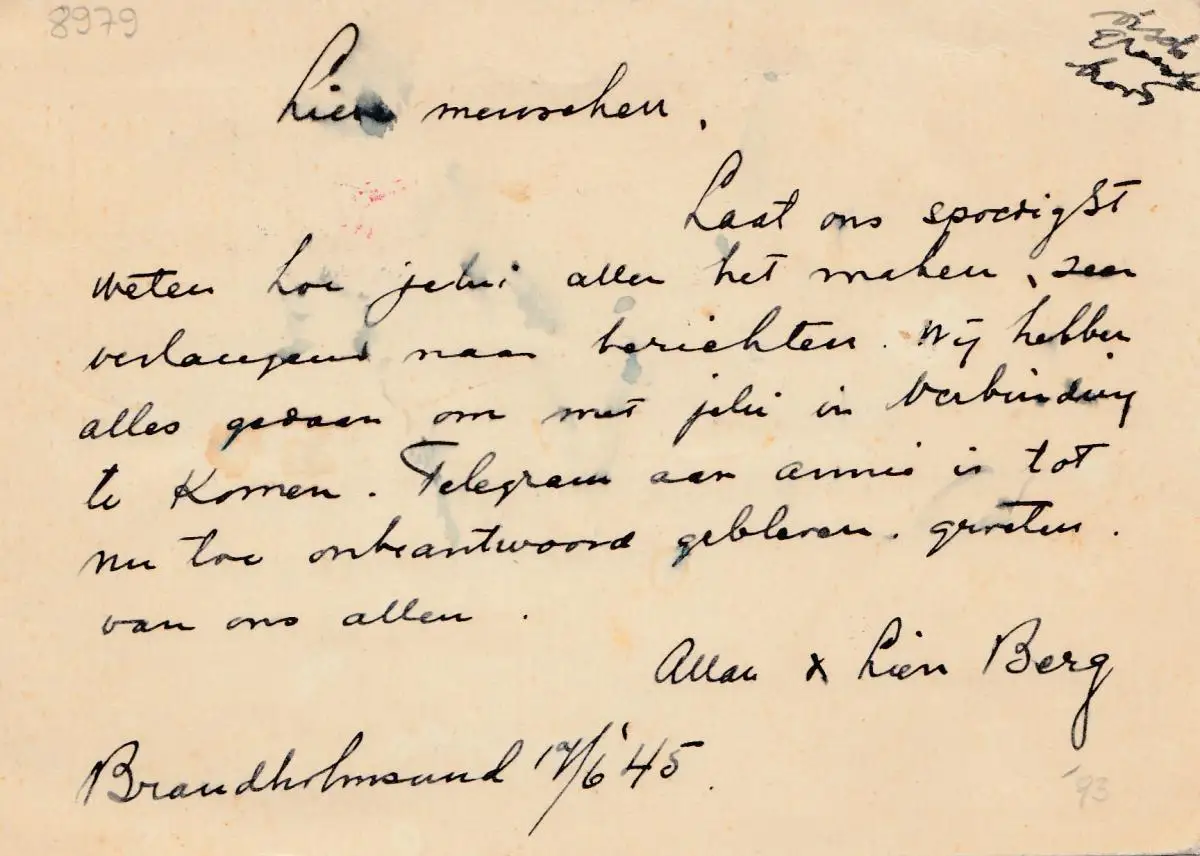 8979
Lieve menschen,
Laat ons spoedigst
weten hoe jelui allen het maken, zeer
verlangend naar berichten. Wij hebben
alles gedaan om met jelui in verbinding
te Komen. Telegram aan annie is tot
nu toe onbeantwoord gebleven. groeten.
van ons allen.
Allan & Lien Berg
Brandholmsund /6 '45.
'93